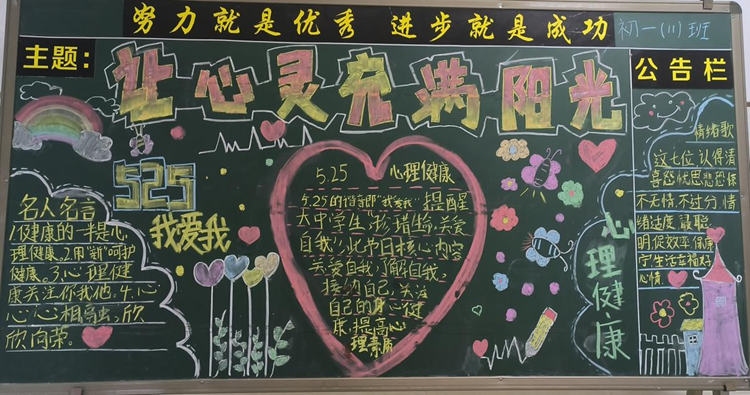 努力就是优秀 进步就是成功
初一(11)班
主题:
让心灵充满阳光
公告栏
525
我爱我
名人名言
1.健康的一半是心
理健康。2.用"新"呵护
健康。3.心理健
康关注你我他。4.心
心心相融，欣
欣向荣。
5.25 心理健康
5.25的谐音即"我爱我"提醒
大中学生"珍惜生命,关爱
自我"。此节日核心内容
关爱自我,了解自我,
接纳自己,关注
自己的身心健
康,提高心
理素质
心理健康
情绪歌
这七位 认得清
喜怒忧思悲恐惊
不无情 不过分 情
绪适度 最聪
明 促效率 保康
宁 生活幸福好
心情